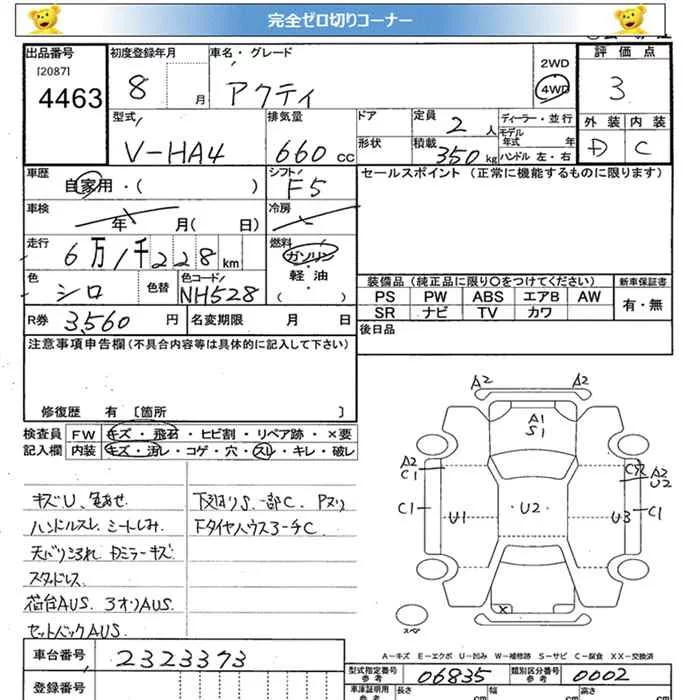 完全ゼロ切りコーナー
出品番号 初度登録年月 車名・グレード 評価点
[2087]
4463 8 月 アクティ 2WD 4WD 3
外装 内装
D C
型式 排気量 ドア 定員 2 人 ディーラー・並行
モデル
年式 年
V-HA4 660 cc 形状 積載 350 kg ハンドル 左・右
車歴 自家用・( ) シフト F5 セールスポイント (正常に機能するものに限ります)
車検 年 月( 日) 冷房
走行 6万1千228 km 燃料 ガソリン
軽・油
( ・ )
色 シロ 色替 色コード NH528
装備品(純正品に限り〇をつけてください) 新車保証書
PS PW ABS エアB AW 有・無
SR ナビ TV カワ
R券 3,560 円 名変期限 月 日 後日品
注意事項申告欄(不具合内容等は具体的に記入して下さい)
修復歴 有 〔箇所 〕
検査員 FW キズ・飛石・ヒビ割・リペア跡・×要
記入欄 内装 キズ・汚レ・コゲ・穴・スレ・キレ・破レ
キズU、色あせ
ハンドルスレ、シートしみ
天バリよごれ Dミラーキズ
スタッドレス
荷台AUS. 3オリAUS.
セットバックAUS
下廻りS 一部C Pヌリ
FタイヤハウスコーナC
A2 A2
A1
S1
A2
C1
A2
U2
C1 U1 U2 U3 C1
X
スペア
A-キズ E-エクボ U-凹み W-補修跡 S-サビ C-腐食 XX-交換済
車台番号 2323373
型式指定番号
参考
06835
類別区分番号
参考
0002
登録番号
車庫証明用
参考
長さ cm 幅 cm 高さ cm